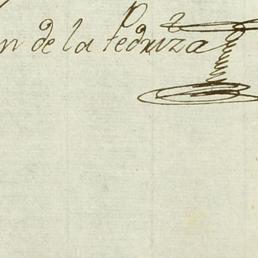 n de la Pedriza